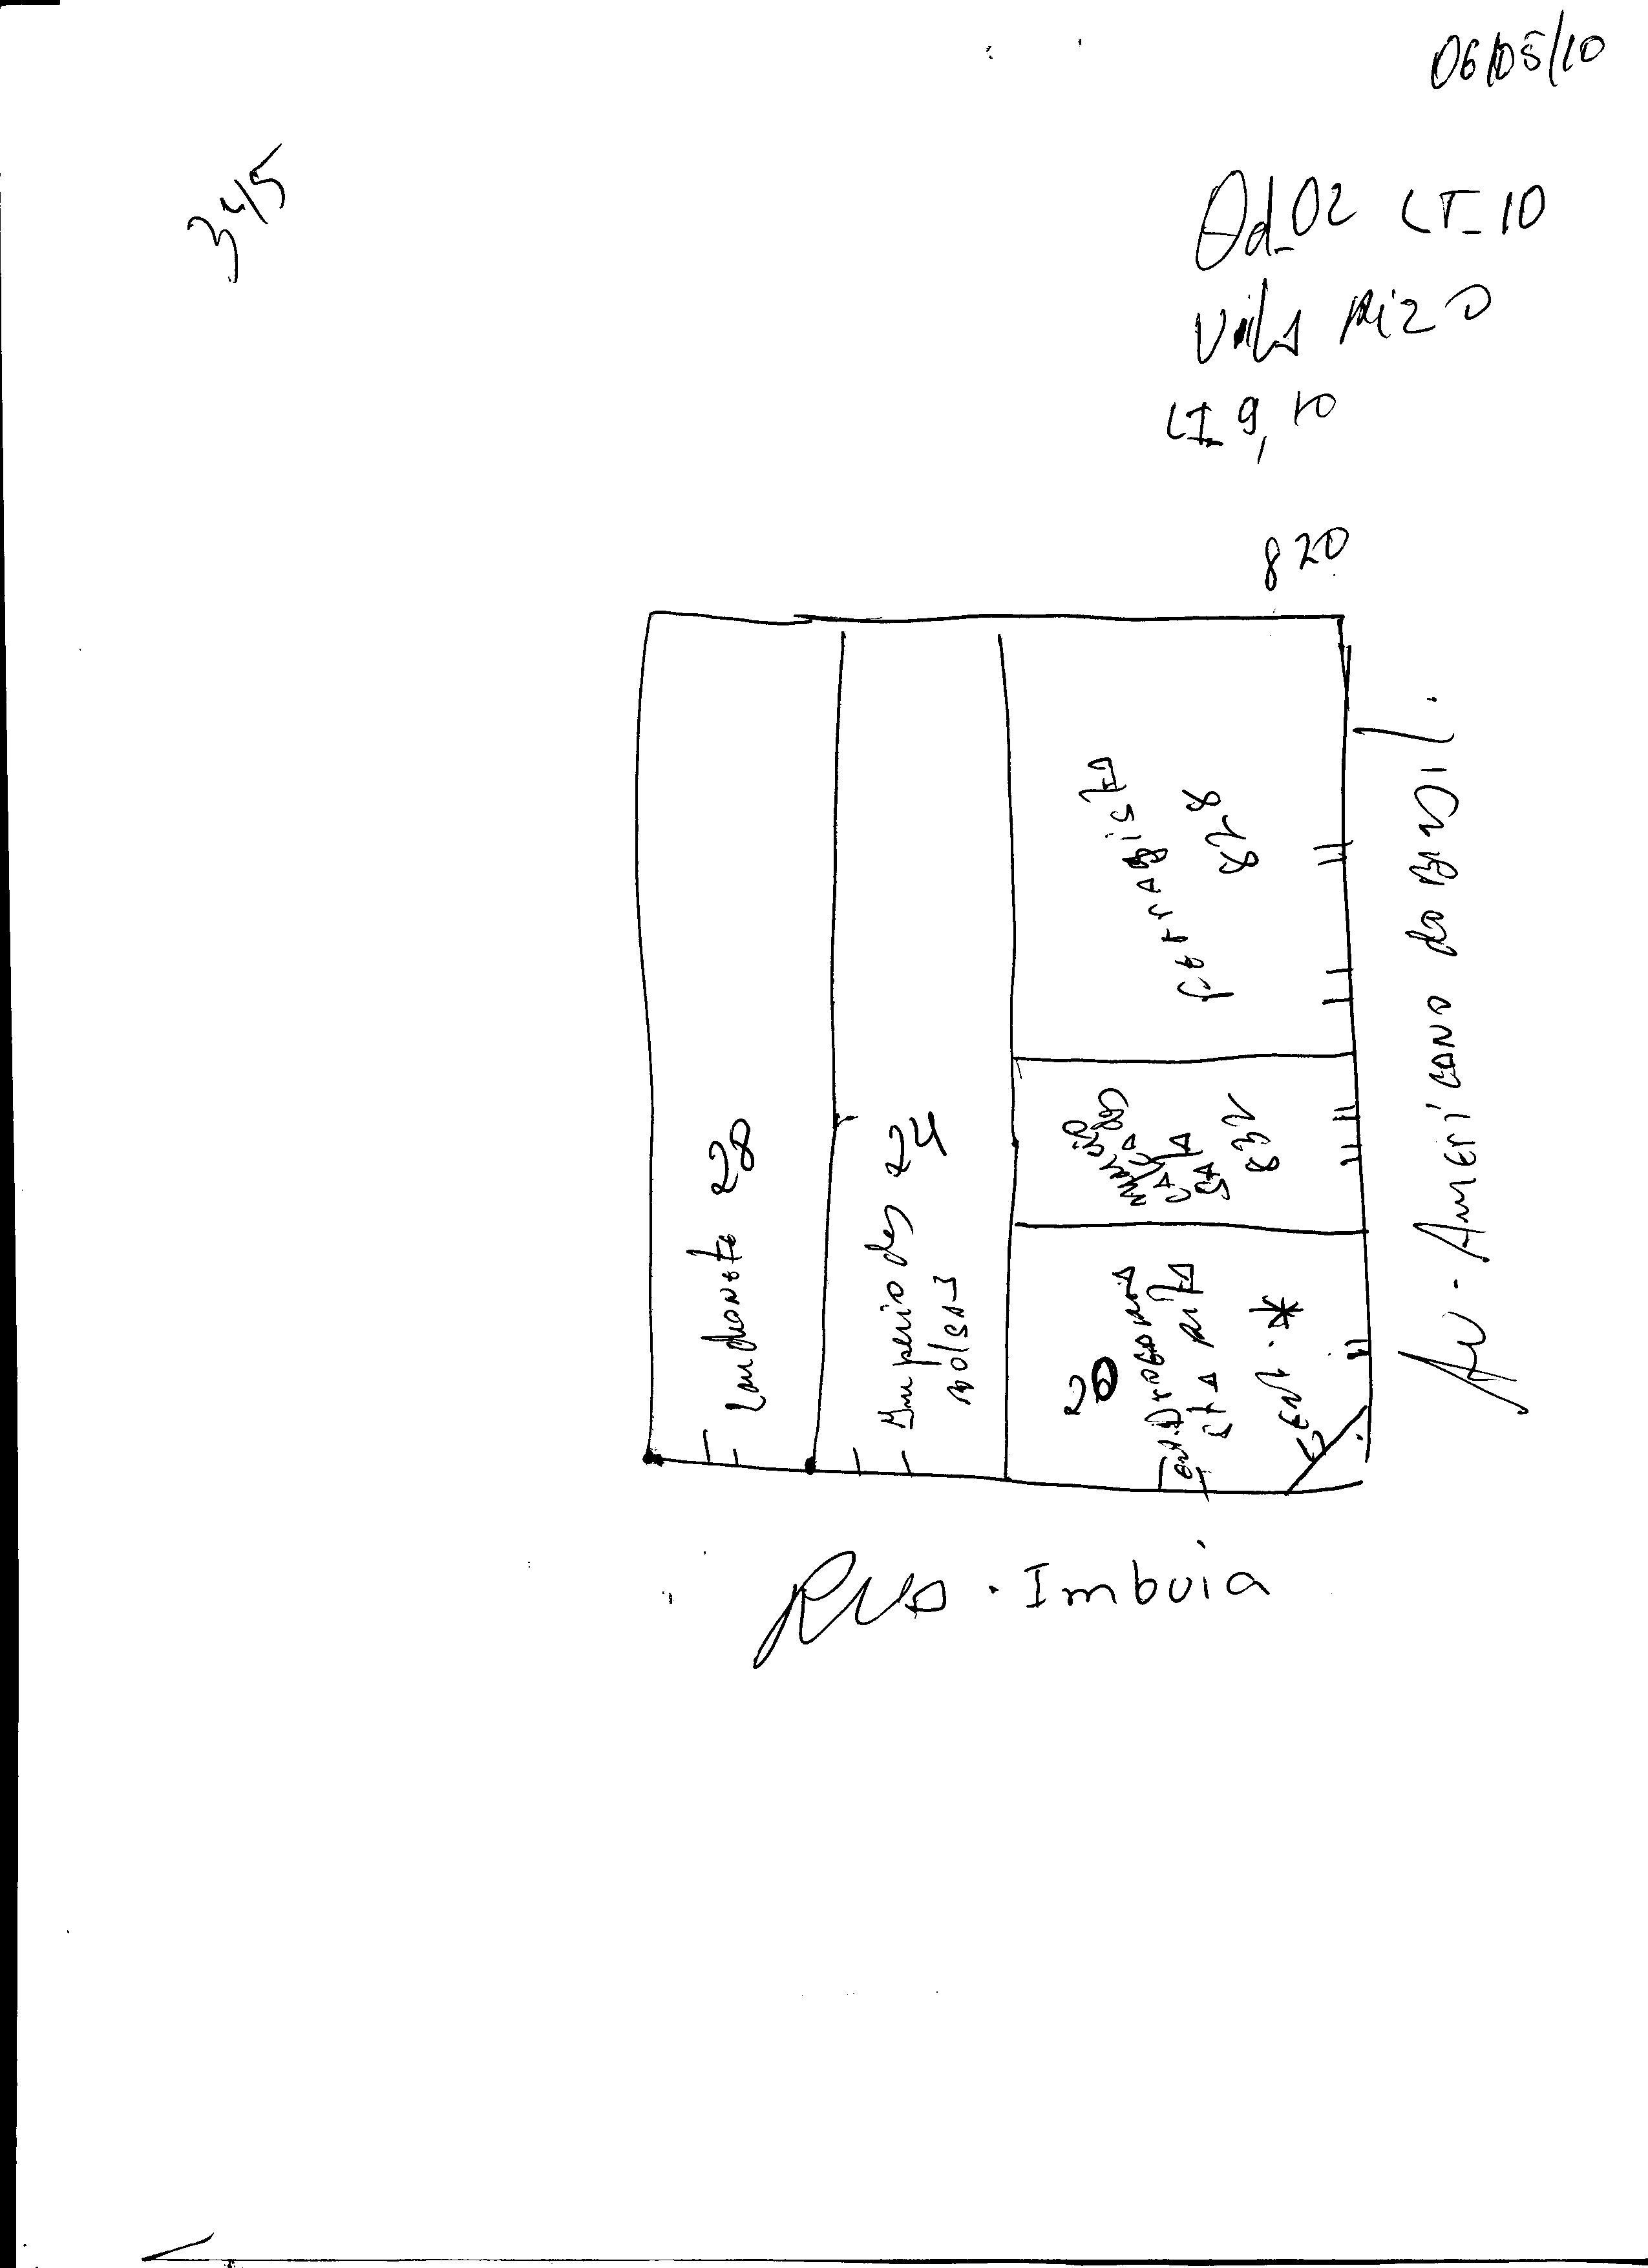 06/05/10
345
Qd_02 LT_10
Vila Rizo
LT 9, 10
820
Lanchonete 28
Imperio das 24
Bolsas
Ferragista
828
832
20
Drogaria
Sta Rita
Ent. *
Av. Americano do Brasil.
Rua. Imbuia